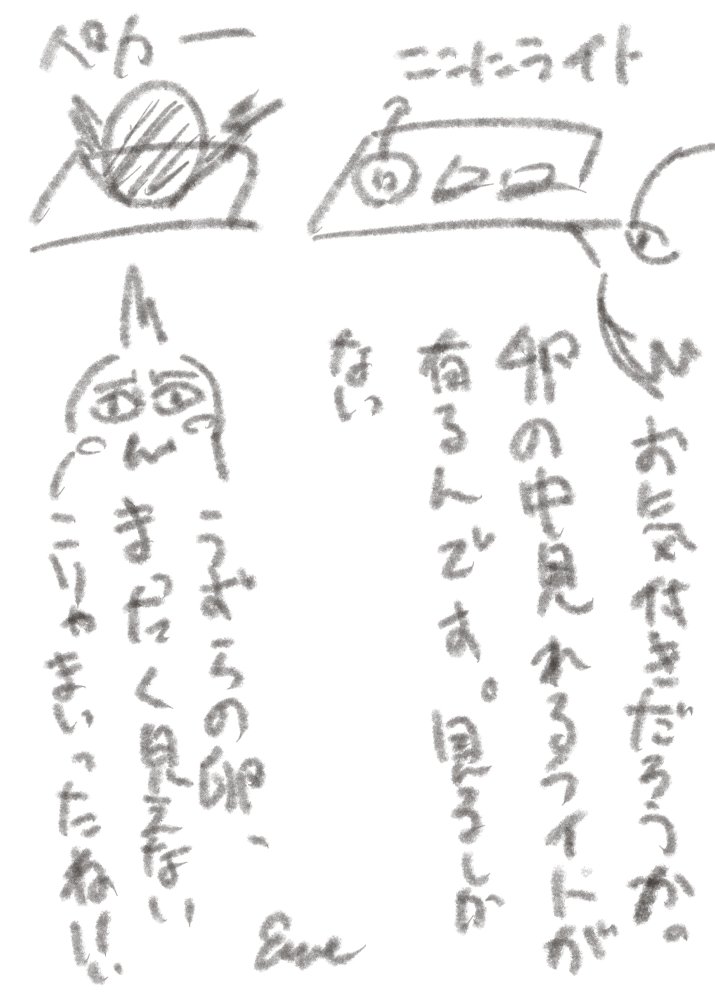 ニンニンライト
お気付きだろうか。
卵の中見れるライトが
有るんです。見るしか
ない
ペカー
うずらの卵、
まったく見えない
こりゃまいったねい。